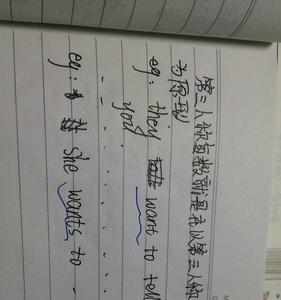 第三人称复数就是在以第三人称
为原型
eg: they want to tell
you.
eg: she wants to